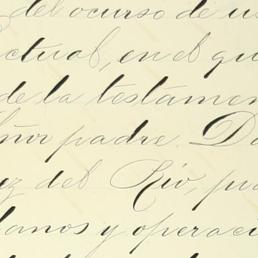 del ocurso de us
ctual, en el qu
de la testamen
ñor padre. D
ez del Rio, pu
lanos y operaci